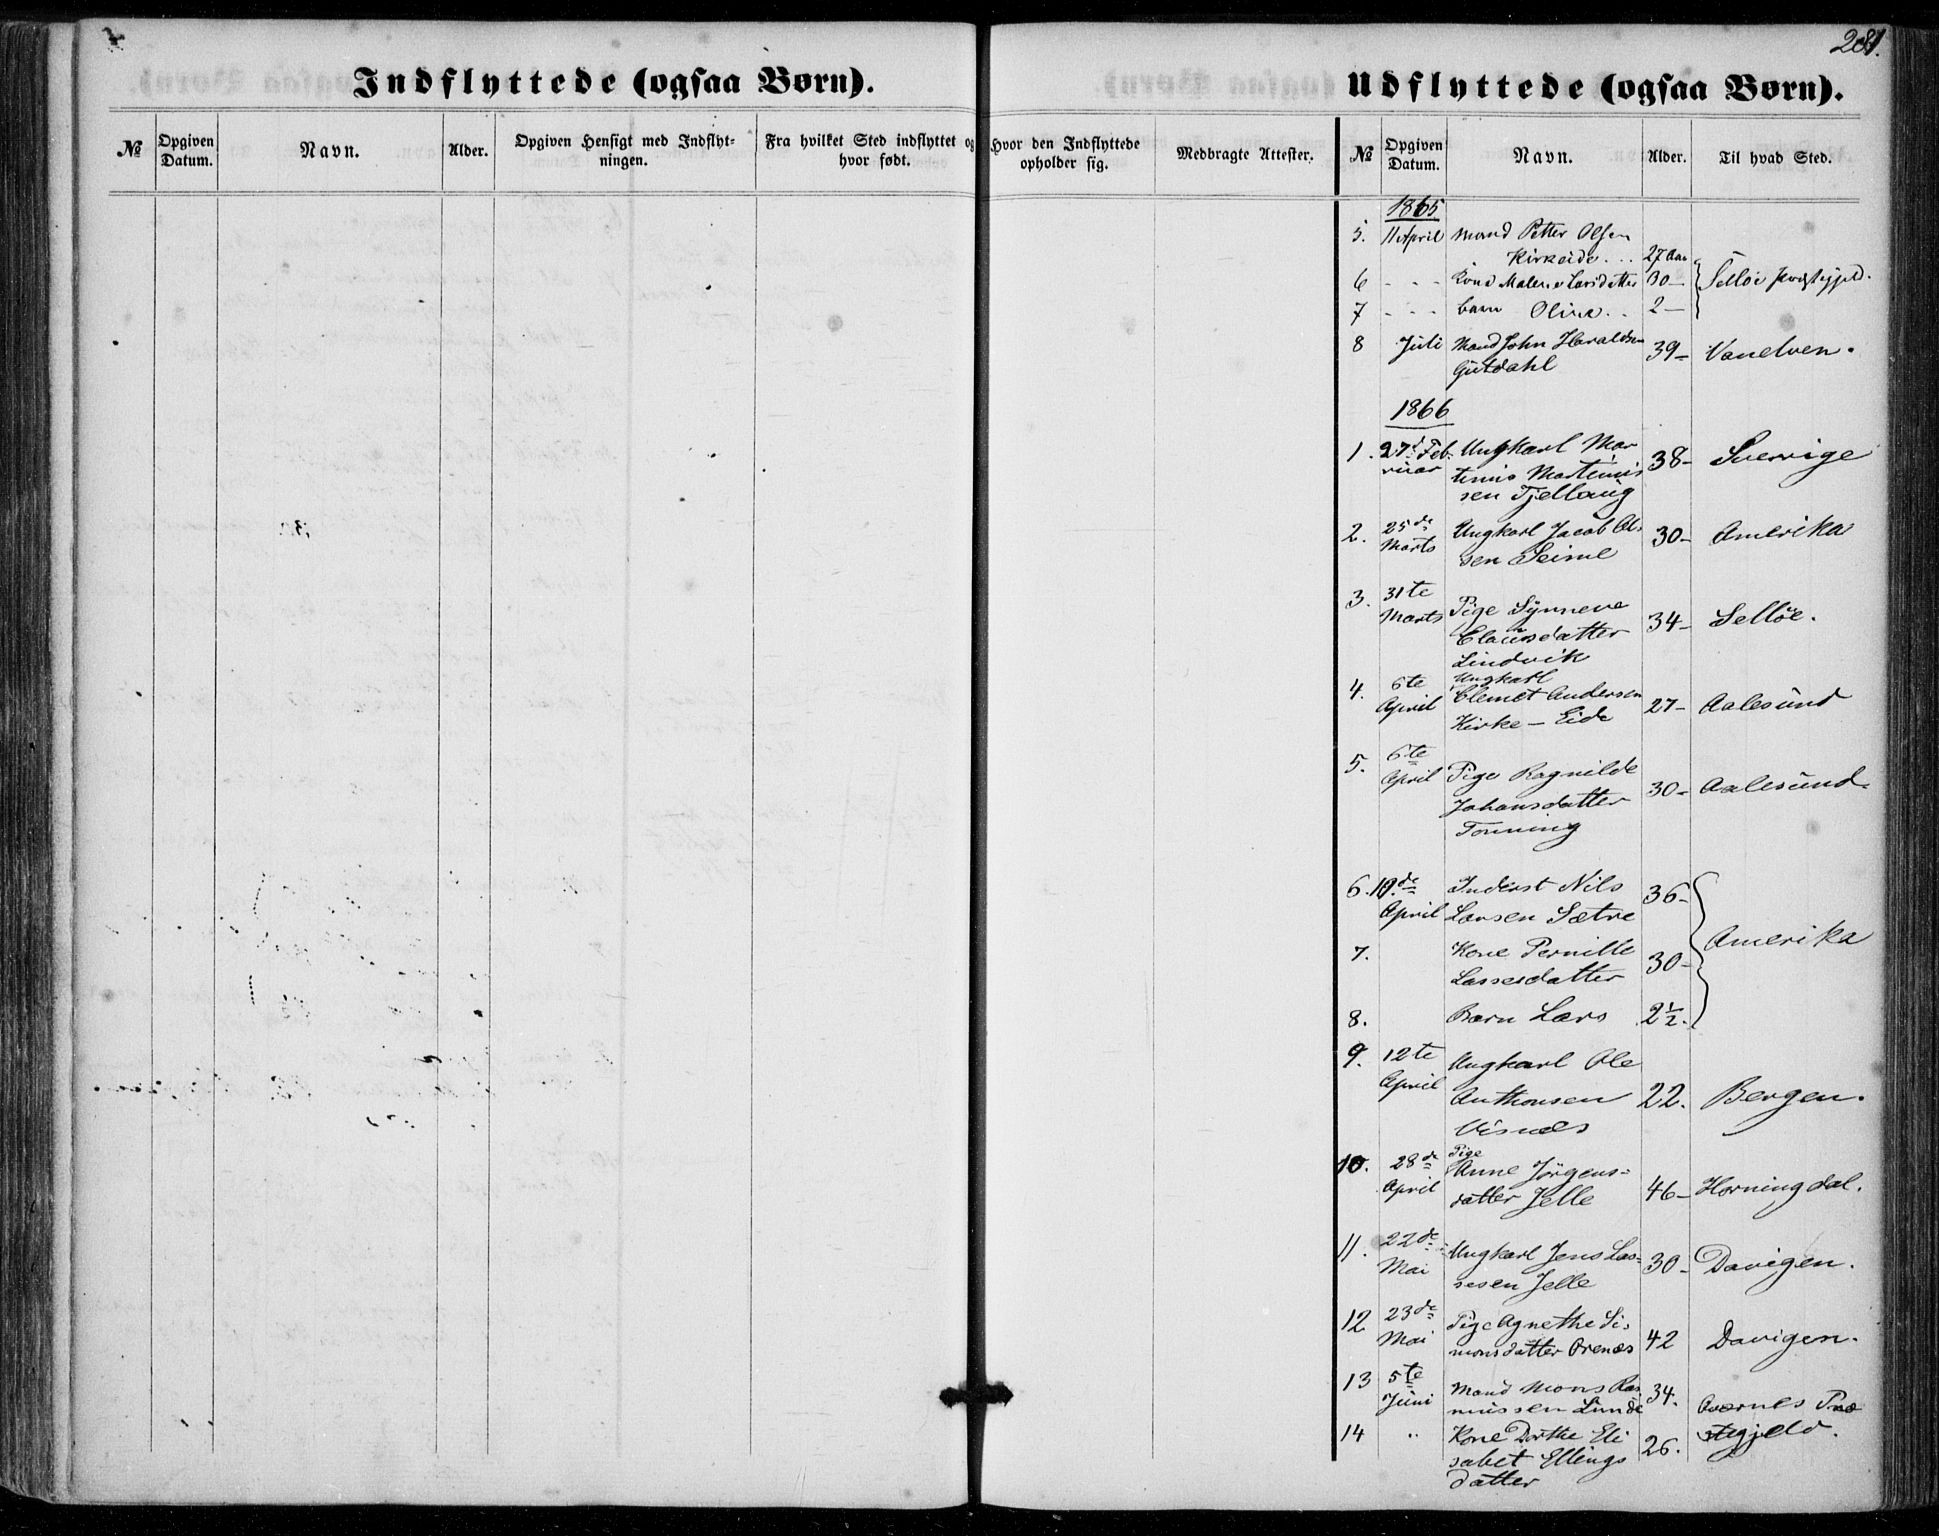 281.
Indflyttede (ogsaa Børn).
Udflyttede (ogsaa Børn).
№ Opgiven Datum. Navn. Alder. Opgiven Hensigt med Indflyt-ningen. Fra hvilket Sted indflyttet og hvor født. Hvor den Indflyttede opholder sig. Medbragte Attester. № Opgiven Datum. Navn. Alder. Til hvad Sted.
1865
5. 11 April Mand Petter Olsen
Kirkeide . . 27 Aar
6 - - - Kone Malene Larsdatter 30 — Selløe Præstegjeld.
7 - - - barn Oline . . 2 —
8 Juli Mand John Haraldsen 39 — Vanelven.
Gutdahl
1866
1. 27d Feb- Ungkarl Mar
ruar tinus Martinus 38 - Sverrige
sen Tjellaug
2. 25de Ungkarl Jacob Ol-
Marts sen Seime 30 - Amerika
3. 31te
Marts Pige Synneve 34 - Selløe.
Clausdatter
Lindvik
4. 6te Ungkarl
April Clemet Andersen 27 - Aalesund
Kirke - Eide
5. 6te
April Pige Ragnilde 30 - Aalesund.
Johansdatter
Tonning
6. 10de Inderst Nils 36 -
April Larsen Sætre
Amerika
7. Kone Pernille 30 -
Lassesdatter
8. Barn Lars 2½.
9. 12te Ungkarl Ole
April Anthonsen 22. Bergen.
Visnæs
10. 28de Pige
April Anne Jørgens-
datter Jelle 46 - Horningdal.
11. 22de Ungkarl Jens Las-
Mai sesen Jelle 30 - Davigen.
12 23de Pige Agnethe Si-
Mai monsdatter Orenæs 42 Davigen.
13 5te Mand Mons Ras
Juni mussen Lunde 34. Aværnes Præ
14 " Kone Dorthe Eli 26. stegjeld.
sabet Ellings
datter